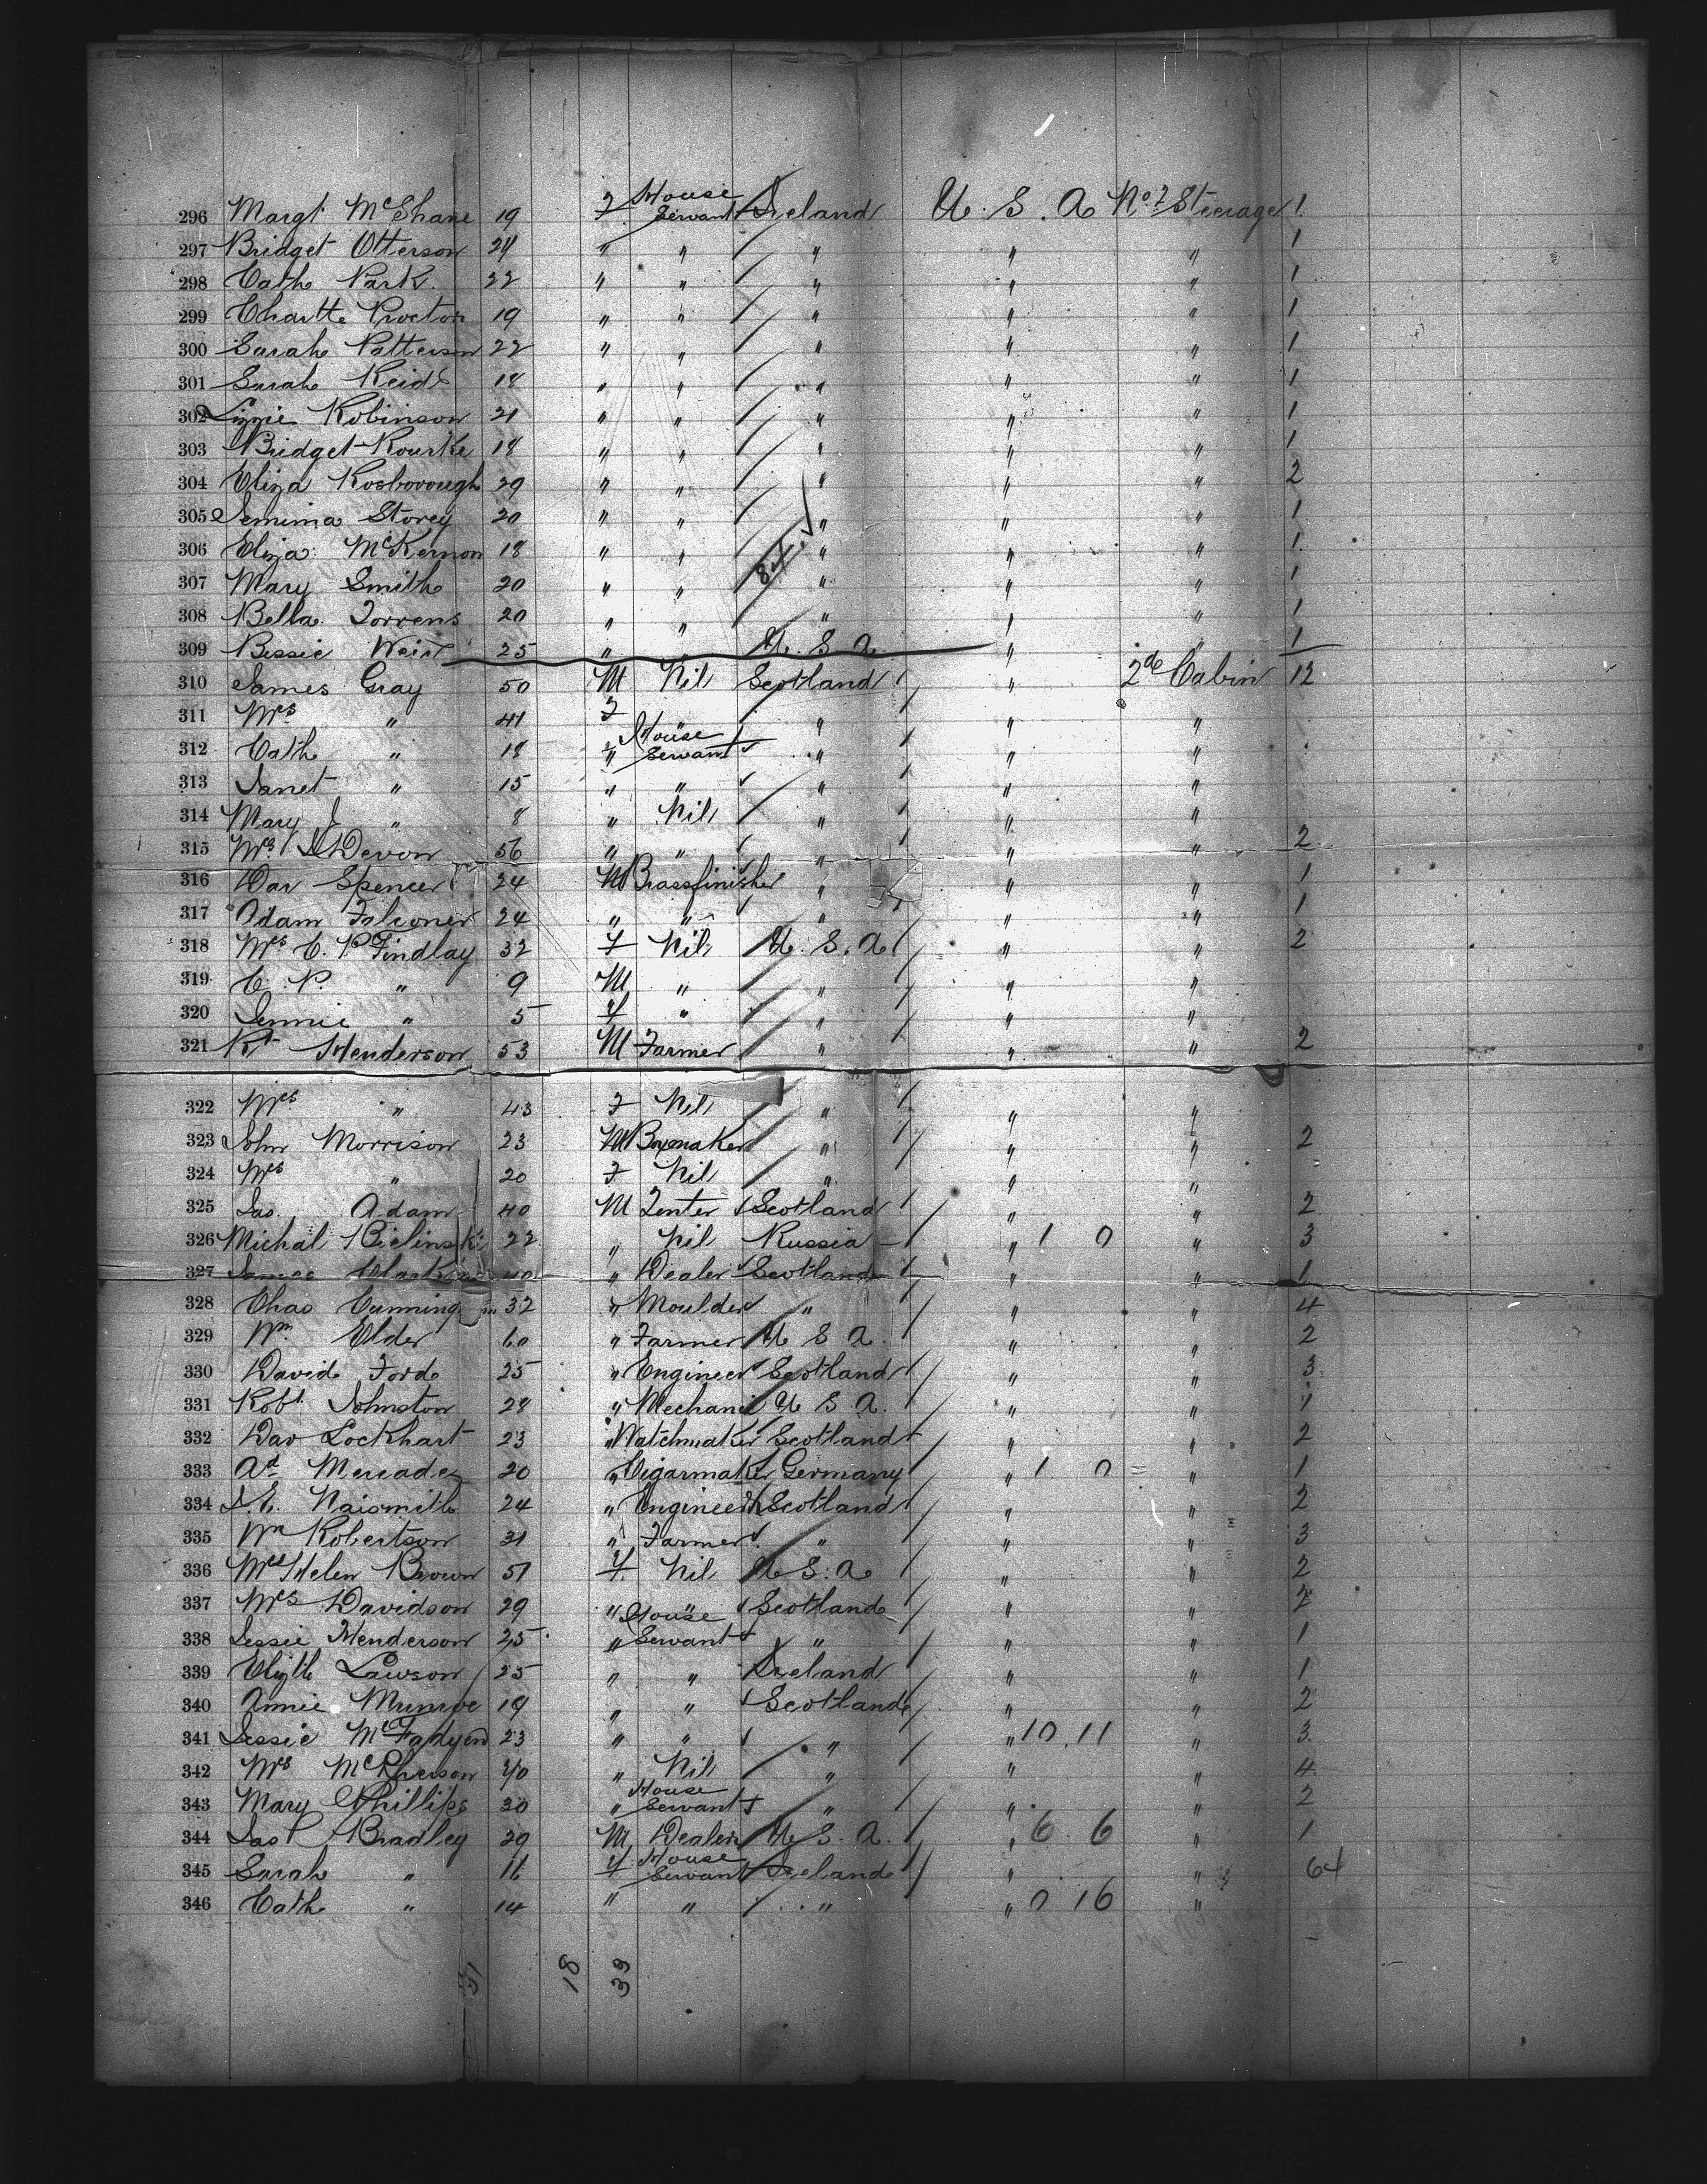 296 Margt McShane 19 F House Servant Ireland U. S. A No. 2 Steerage 1
297 Bridget Otterson 24 " " " " " 1
298 Cath Park 22 " " " " " 1
299 Charltte Procton 19 " " " " " 1
300 Sarah Patterson 22 " " " " " 1
301 Sarah Reid 18 " " " " " 1
302 Lizzie Robinson 21 " " " " " 1
303 Bridget Rourke 18 " " " " " 1
304 Eliza Rosborough 29 " " " " " 2
305 Jemima Storey 20 " " " " " 1
306 Eliza McKernon 18 " " " " " 1
307 Mary Smith 20 " " " " " 1
308 Bella Torrens 20 " " " " " 1
309 Bessie Weir 25 " " U. S. A. " " 1
310 James Gray 50 M Nil Scotland " 2d Cabin 12
311 Mrs " 41 F " " " "
312 Cath " 18 " House Servant " " "
313 Janet " 15 " " " " "
314 Mary J " 8 " Nil " " "
315 Mrs Devon 56 " " " " " 2
316 Dav Spencer 24 M Brassfinisher " " " 1
317 Adam Falconer 24 " " " " " 1
318 Mrs C. P. Findlay 32 F Nil U. S. A " " 2
319 C. P. " 9 M " " " "
320 Jennie " 5 F " " " "
321 Rt Henderson 53 M Farmer " " " 2
322 Mrs " 43 F Nil " " "
323 John Morrison 23 M Boxmaker " " " 2
324 Mrs " 20 F Nil " " "
325 Jas. Adam 40 M Tenter Scotland " " 2
326 Michal Bielinski 22 " Nil Russia " 1 0 " 3
327 James 40 " Dealer Scotland " " 1
328 Chas Cunning m 32 " Moulder " " " 4
329 Wm Elder 60 " Farmer U S A. " " 2
330 David Ford 25 " Engineer Scotland " " 3
331 Robt Johnston 28 " Mechanic U S A. " " 1
332 Dav Lockhart 23 " Watchmaker Scotland " " 2
333 Ad Mercadez 20 " Cigarmaker Germany " 1 0 " 1
334 Naismith 24 " Engineer Scotland " " 2
335 Wm Robertson 31 " Farmer " " " 3
336 Mrs Helen Brown 51 F. Nil U S. A " " 2
337 Mrs Davidson 29 " " Scotland " " 2
338 Jessie Henderson 25 " House Servant " " " 1
339 Elizth Lawson 25 " " Ireland " " 1
340 Annie Munroe 19 " " Scotland " " 2
341 Jessie McFadyen 23 " " " " 10 11 " 3
342 Mrs McPherson 40 " Nil " " " 4
343 Mary Phillips 30 " House Servant " " " 2
344 Jas Bradley 29 M Dealer U S. A. " 6 6 " 1
345 Sarah " 16 F House Servant Ireland " " 64
346 Cath " 14 " " " " 0 16 "
18 33